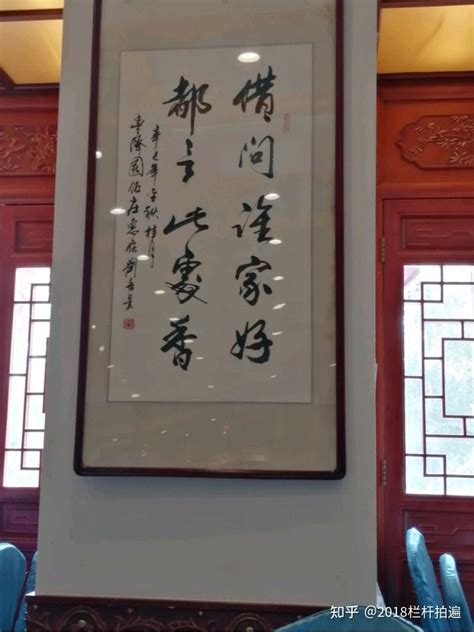 借问谁家好
都言此處香
辛巳年金秋桂月
隆園伍店惠存
知乎 @2018栏杆拍遍